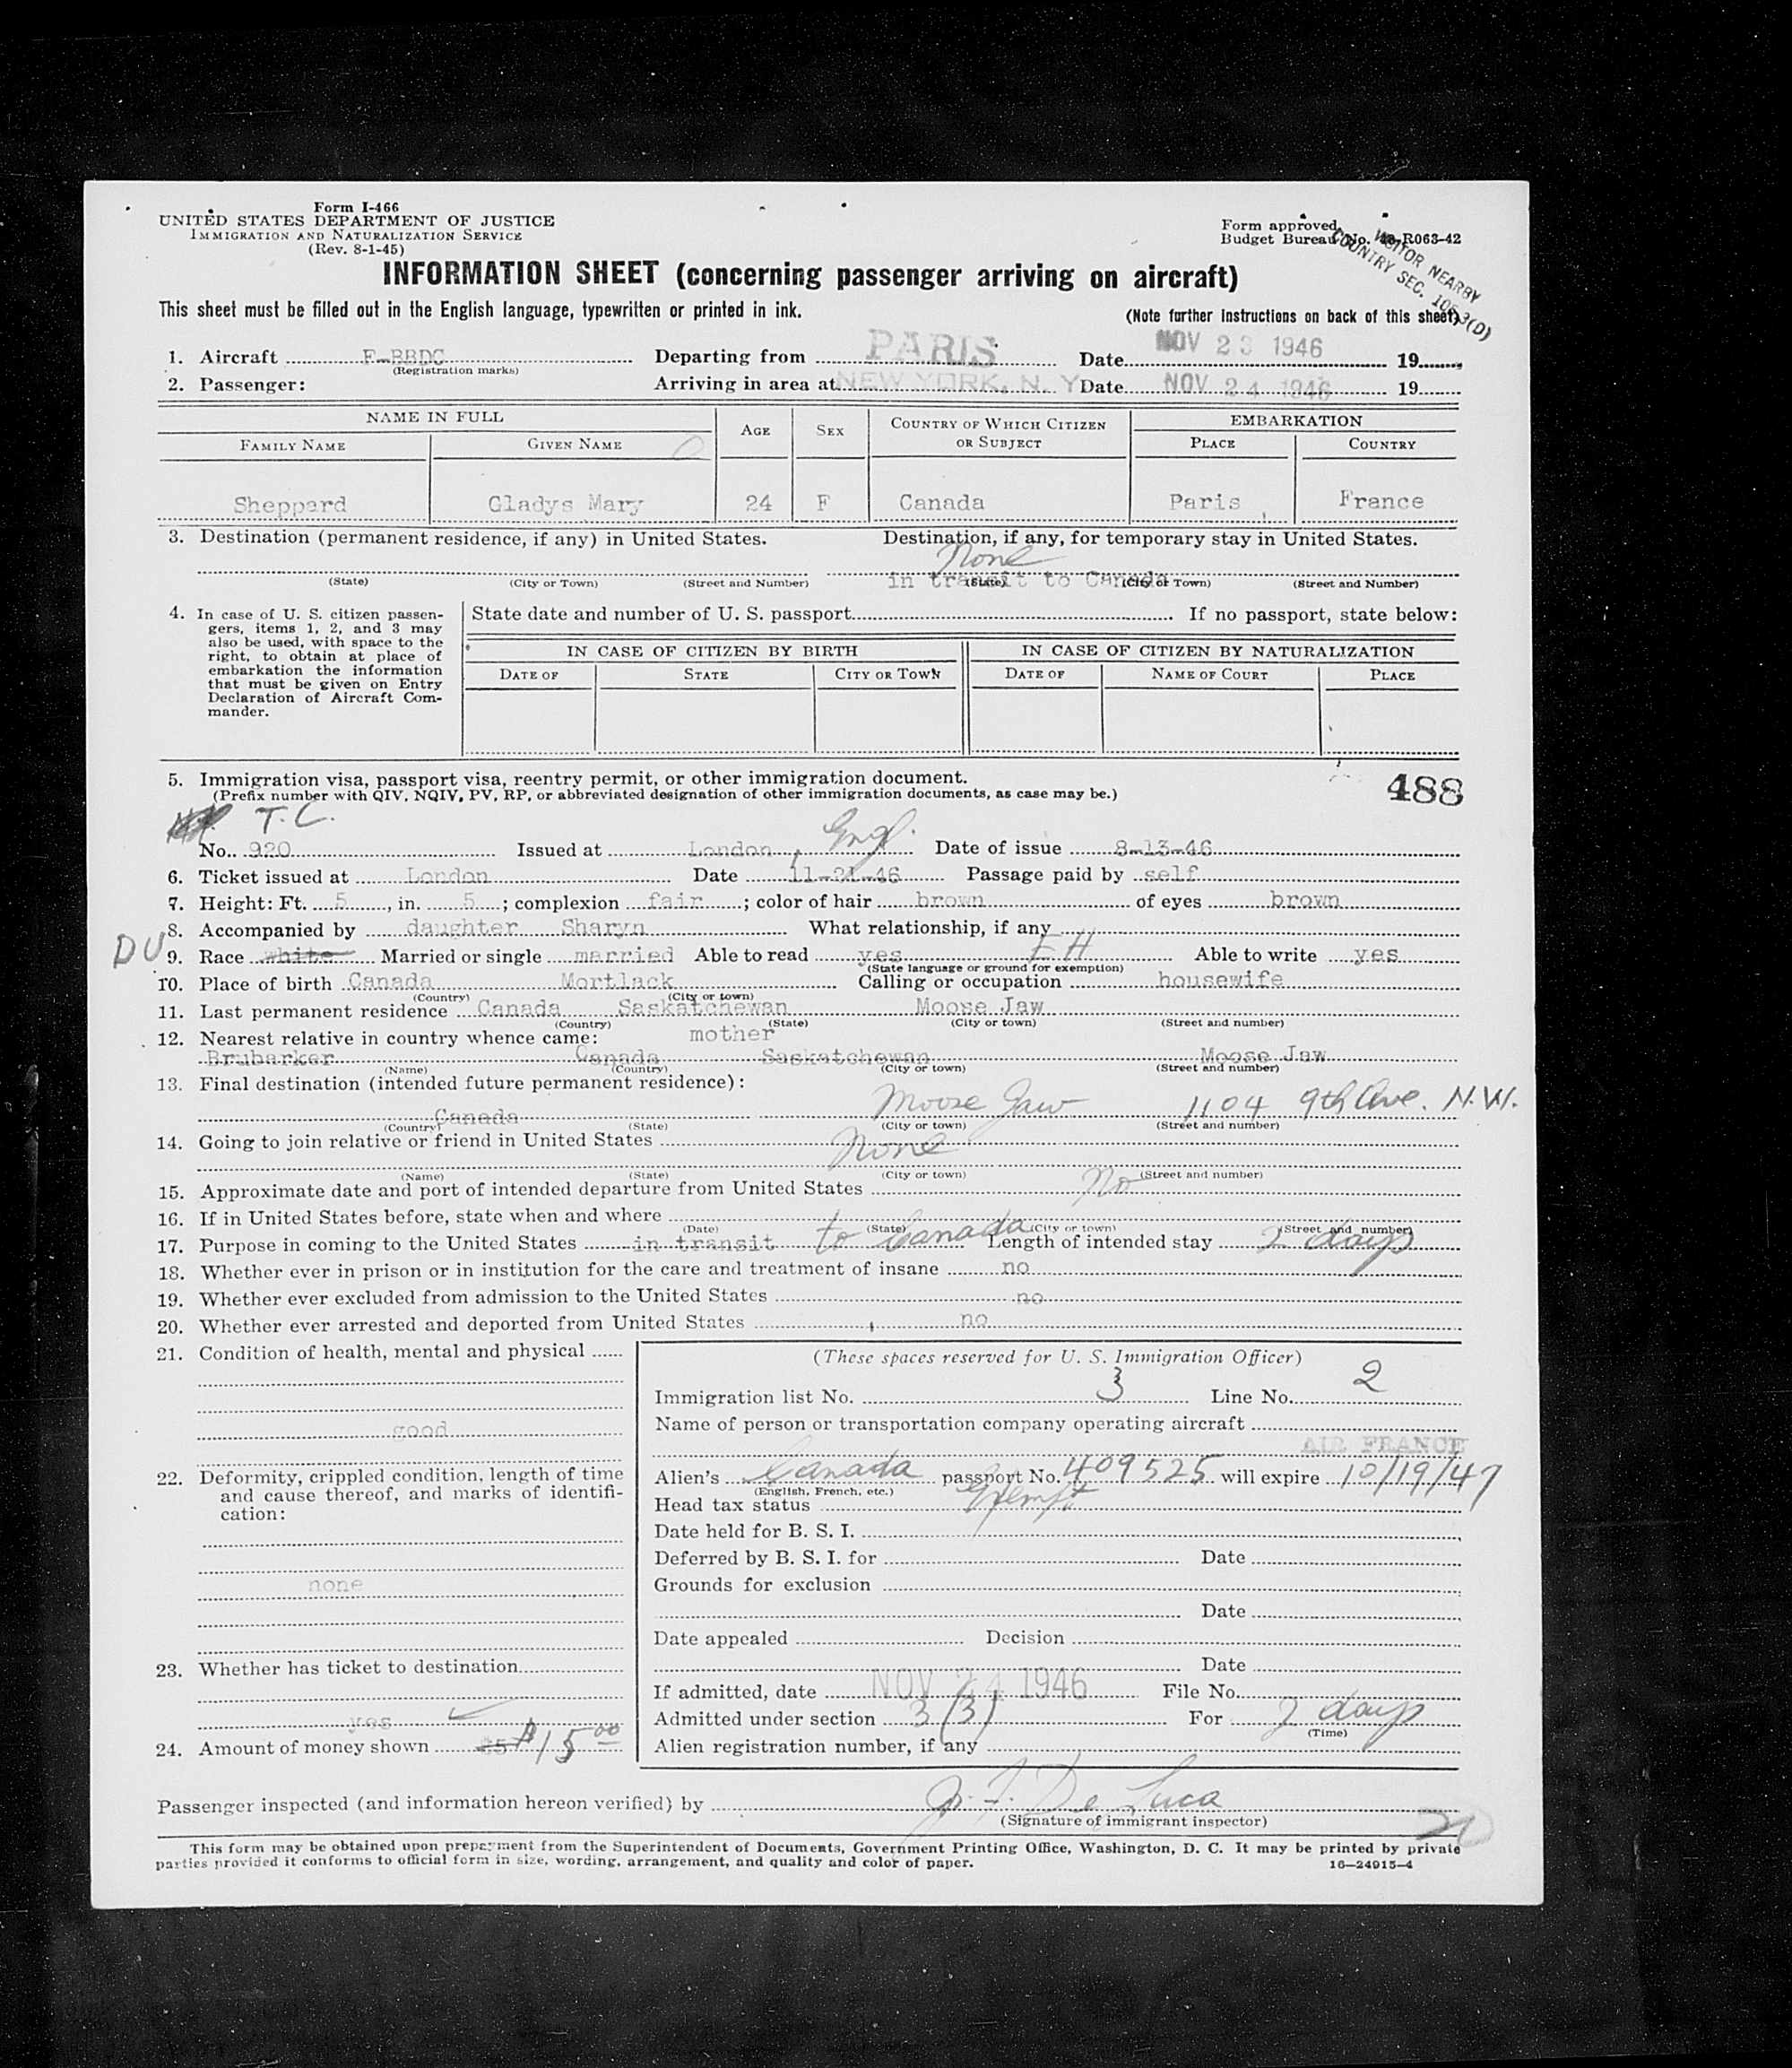 Form I-466
UNITED STATES DEPARTMENT OF JUSTICE
IMMIGRATION AND NATURALIZATION SERVICE
(Rev. 8-1-45)
Form approved.
Budget Bureau No. 43-R063-42
VISITOR NEARBY
COUNTRY SEC. 10 3(D)
INFORMATION SHEET (concerning passenger arriving on aircraft)
This sheet must be filled out in the English language, typewritten or printed in ink.
(Note further instructions on back of this sheet)
1. Aircraft F-BBDC Departing from PARIS Date NOV 23 1946 19
(Registration marks)
2. Passenger: Arriving in area at NEW YORK, N. Y. Date NOV 24 1946 19
NAME IN FULL AGE SEX COUNTRY OF WHICH CITIZEN OR SUBJECT EMBARKATION
FAMILY NAME GIVEN NAME PLACE COUNTRY
Sheppard Gladys Mary 24 F Canada Paris France
3. Destination (permanent residence, if any) in United States. Destination, if any, for temporary stay in United States.
None
in transit to Canada
(State) (City or Town) (Street and Number) (State) (City or Town) (Street and Number)
4. In case of U. S. citizen passengers, items 1, 2, and 3 may also be used, with space to the right, to obtain at place of embarkation the information that must be given on Entry Declaration of Aircraft Commander.
State date and number of U. S. passport If no passport, state below:
IN CASE OF CITIZEN BY BIRTH IN CASE OF CITIZEN BY NATURALIZATION
DATE OF STATE CITY OR TOWN DATE OF NAME OF COURT PLACE
5. Immigration visa, passport visa, reentry permit, or other immigration document.
(Prefix number with QIV, NQIV, PV, RP, or abbreviated designation of other immigration documents, as case may be.)
488
T.C.
No. 920 Issued at London, Engl. Date of issue 8-13-46
6. Ticket issued at London Date 11-21-46 Passage paid by self
7. Height: Ft. 5, in. 5; complexion fair; color of hair brown of eyes brown
8. Accompanied by daughter Sharyn What relationship, if any
DU
9. Race white Married or single married Able to read yes EH Able to write yes
(State language or ground for exemption)
10. Place of birth Canada Mortlack Calling or occupation housewife
(Country) (City or town)
11. Last permanent residence Canada Saskatchewan Moose Jaw
(Country) (State) (City or town) (Street and number)
12. Nearest relative in country whence came: mother
Brubarker Canada Saskatchewan Moose Jaw
(Name) (Country) (City or town) (Street and number)
13. Final destination (intended future permanent residence):
Canada Moose Jaw 1104 9th Ave. N.W.
(Country) (State) (City or town) (Street and number)
14. Going to join relative or friend in United States None
(Name) (State) (City or town) (Street and number)
15. Approximate date and port of intended departure from United States No
16. If in United States before, state when and where
(Date) (State) (City or town) (Street and number)
17. Purpose in coming to the United States in transit to Canada Length of intended stay 2 days
18. Whether ever in prison or in institution for the care and treatment of insane no
19. Whether ever excluded from admission to the United States no
20. Whether ever arrested and deported from United States no
21. Condition of health, mental and physical
good
22. Deformity, crippled condition, length of time and cause thereof, and marks of identification:
none
23. Whether has ticket to destination
yes
24. Amount of money shown $15 00
(These spaces reserved for U. S. Immigration Officer)
Immigration list No. 3 Line No. 2
Name of person or transportation company operating aircraft
AIR FRANCE
Alien's Canada passport No. 409525 will expire 10/19/47
(English, French, etc.)
Head tax status Exempt
Date held for B. S. I.
Deferred by B. S. I. for Date
Grounds for exclusion
Date
Date appealed Decision
Date
If admitted, date NOV 24 1946 File No.
Admitted under section 3(3) For 2 days
(Time)
Alien registration number, if any
Passenger inspected (and information hereon verified) by J. F. De Luca
(Signature of immigrant inspector)
This form may be obtained upon prepayment from the Superintendent of Documents, Government Printing Office, Washington, D. C. It may be printed by private
parties provided it conforms to official form in size, wording, arrangement, and quality and color of paper. 16—24915-4